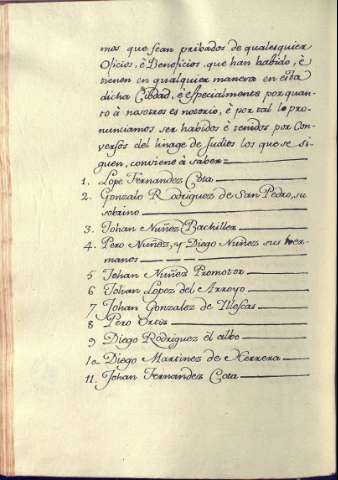 mos que sean pribados de qualesquier
Oficios, è Beneficios, que han habido, è
tienen en qualquier manera en esta
dicha Cibdad, è especialmente por quan-
to à nosotros es notorio, è por tal lo pro-
nunciamos ser habidos è tenidos por Con-
versos del linage de Judios los que se si-
guen, conviene à saber
1. Lope Fernandez Cota
2. Gonzalo Rodriguez de San Pedro, su
sobrino
3. Johan Nuñez Bachiller
4. Pero Nuñez, y Diego Nuñez sus her-
manos
5 Johan Nuñez Promotor
6 Johan Lopez del Arroyo
7 Johan Gonzalez de Illescas
8 Pero Ortiz
9 Diego Rodriguez el albo
10 Diego Martinez de Herrera
11. Johan Fernandez Cota